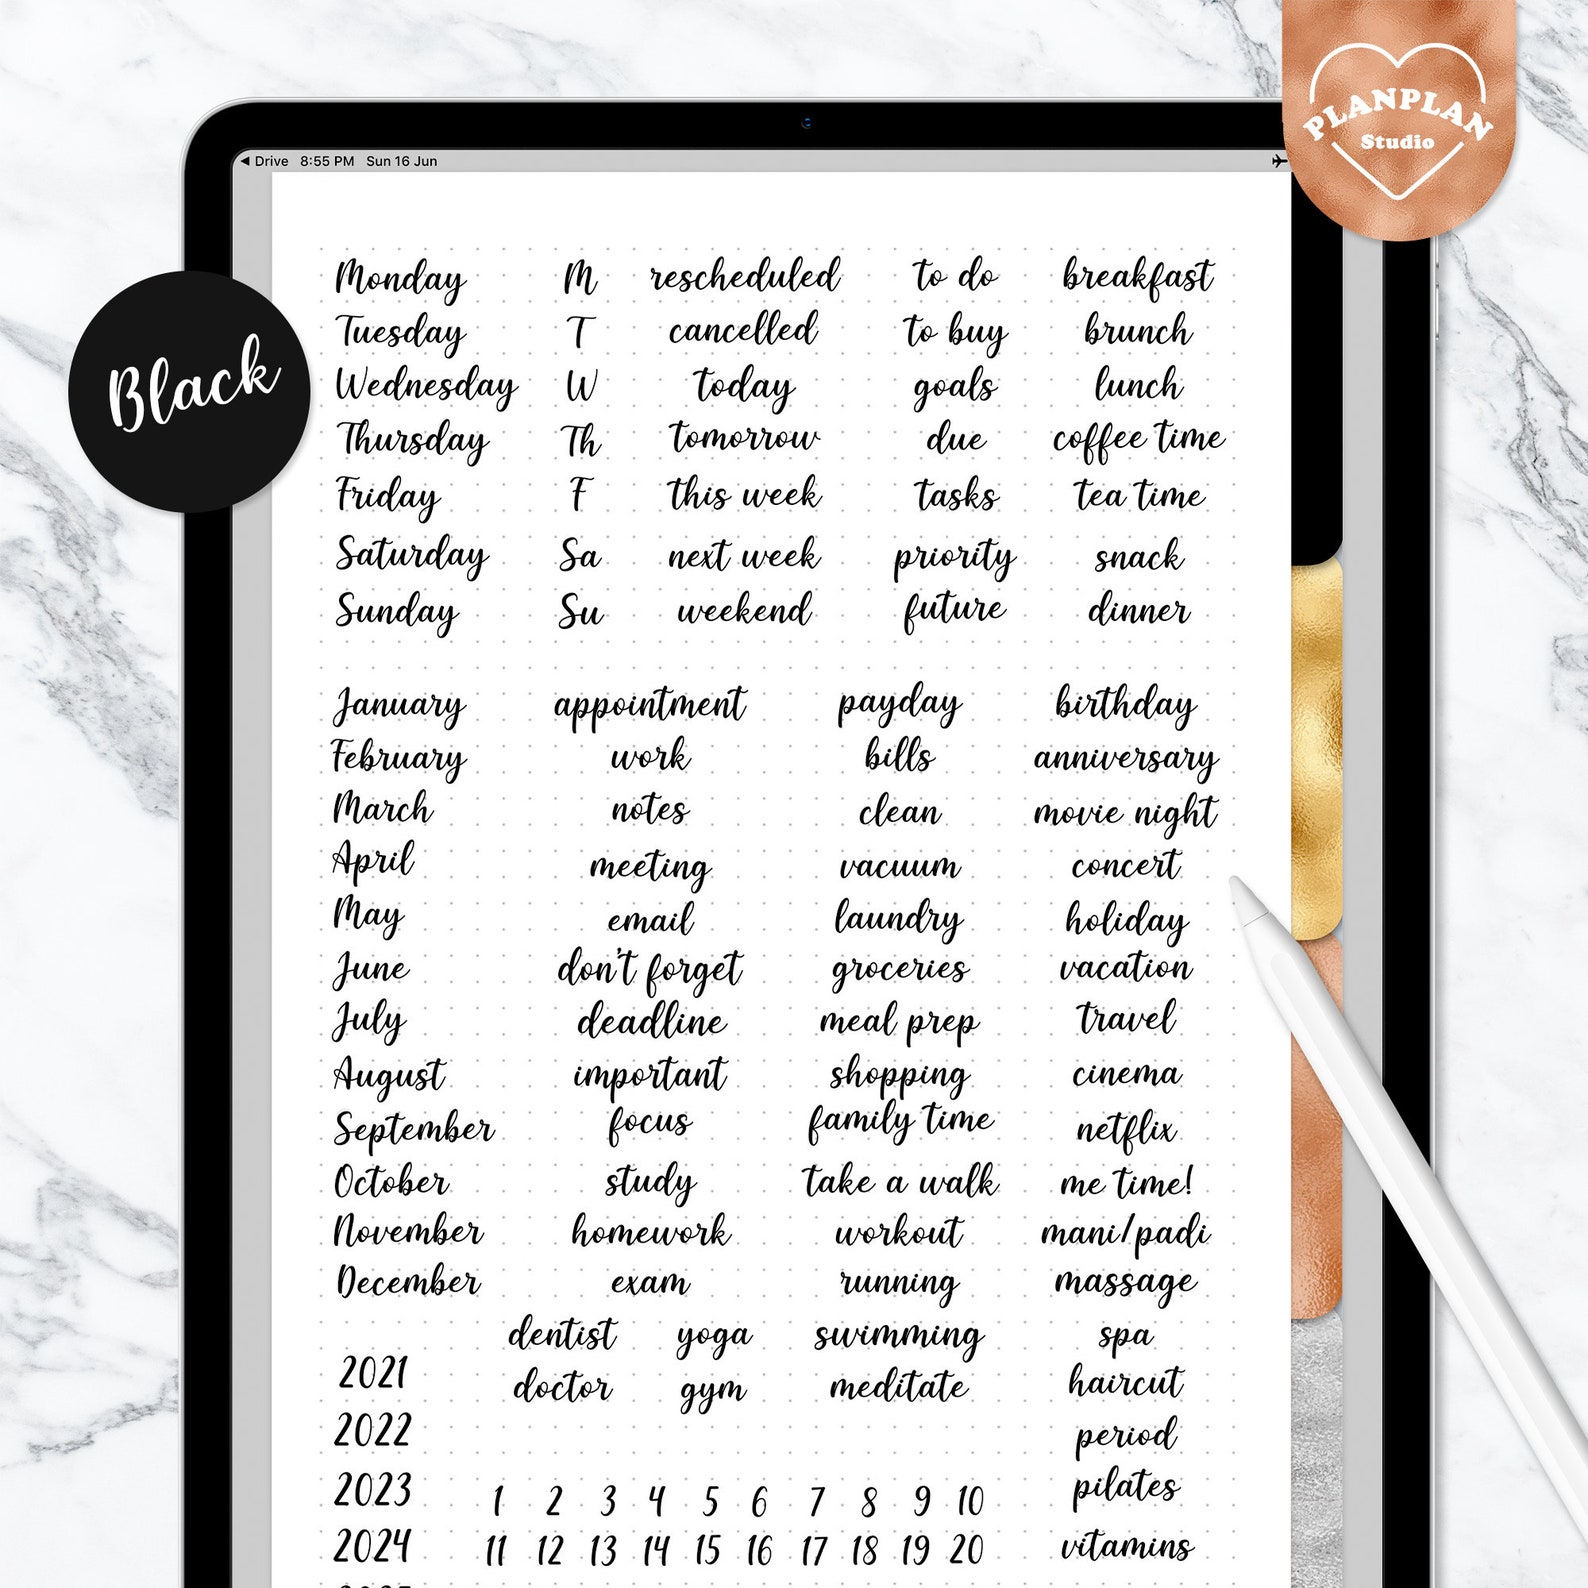 PLANPLAN
Studio
Drive 8:55 PM Sun 16 Jun
Black
Monday M rescheduled to do breakfast
Tuesday T cancelled to buy brunch
Wednesday W today goals lunch
Thursday Th tomorrow due coffee time
Friday F this week tasks tea time
Saturday Sa next week priority snack
Sunday Su weekend future dinner
January appointment payday birthday
February work bills anniversary
March notes clean movie night
April meeting vacuum concert
May email laundry holiday
June don't forget groceries vacation
July deadline meal prep travel
August important shopping cinema
September focus family time netflix
October study take a walk me time!
November homework workout mani/padi
December exam running massage
dentist yoga swimming spa
2021 doctor gym meditate haircut
2022 period
2023 1 2 3 4 5 6 7 8 9 10 pilates
2024 11 12 13 14 15 16 17 18 19 20 vitamins